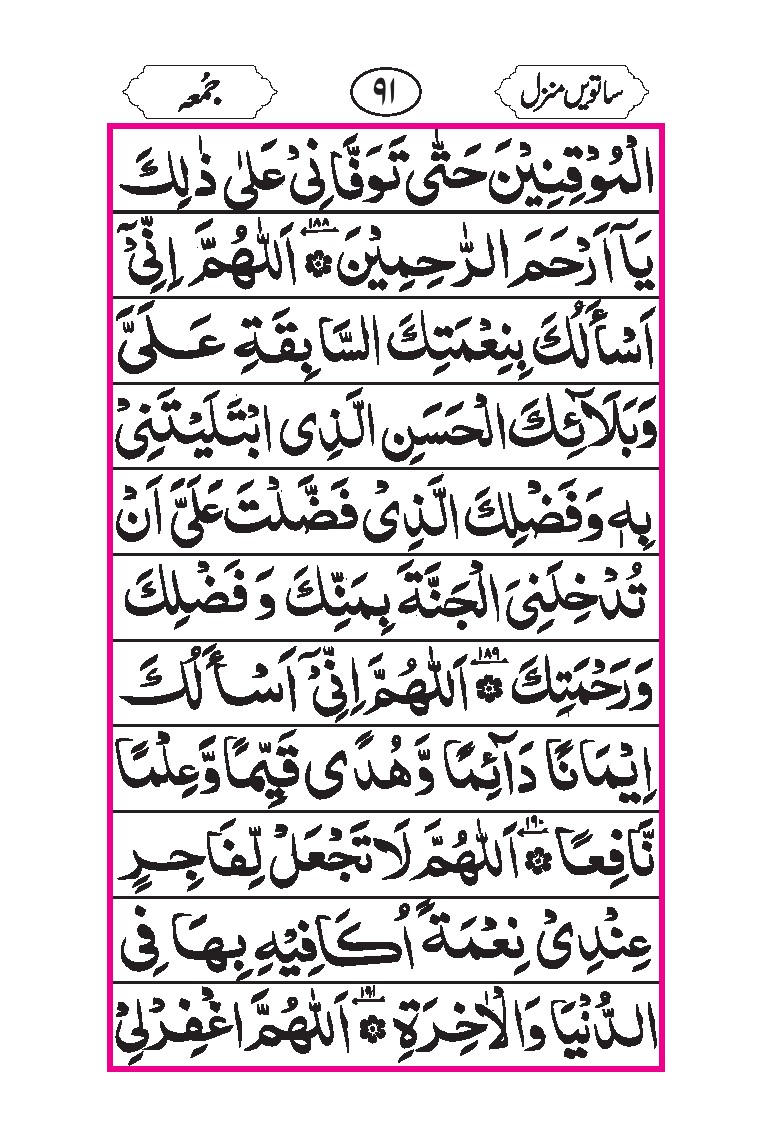 ساتویں منزل ۹۱ جُمعہ
الْمُوْقِنِيْنَ حَتّٰى تَوَفَّانِىْ عَلٰى ذٰلِكَ
يَآ اَرْحَمَ الرّٰحِمِيْنَ ۞ ۱۸۸ اَللّٰهُمَّ اِنِّىْٓ
اَسْأَلُكَ بِنِعْمَتِكَ السَّابِقَةِ عَلَىَّ
وَبَلَآئِكَ الْحَسَنِ الَّذِى ابْتَلَيْتَنِىْ
بِهٖ وَفَضْلِكَ الَّذِىْ فَضَّلْتَ عَلَىَّ اَنْ
تُدْخِلَنِىَ الْجَنَّةَ بِمَنِّكَ وَفَضْلِكَ
وَرَحْمَتِكَ ۞ ۱۸۹ اَللّٰهُمَّ اِنِّىْٓ اَسْأَلُكَ
اِيْمَانًا دَآئِمًا وَّهُدًى قَيِّمًا وَّعِلْمًا
نَّافِعًا ۞ ۱۹۰ اَللّٰهُمَّ لَا تَجْعَلْ لِّفَاجِرٍ
عِنْدِىْ نِعْمَةً اُكَافِيْهِ بِهَا فِى
الدُّنْيَا وَالْاٰخِرَةِ ۞ ۱۹۱ اَللّٰهُمَّ اغْفِرْلِىْ